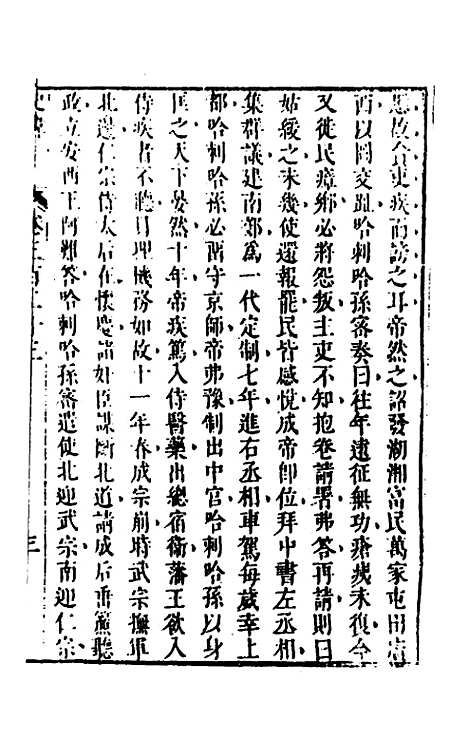 思故貪吏疾而謗之耳帝然之詔發湖湘富民萬家屯田廣
西以圖交趾哈剌哈孫密奏曰往年遠征無功瘡痍未復今
又徙民瘴鄉必將怨叛主吏不知抱卷請署弗答再請則曰
姑緩之未幾使還報罷民皆感悅成帝卽位拜中書左丞相
集群議建南郊爲一代定制七年進右丞相車駕每歲幸上
都哈剌哈孫必留守京師帝弗豫制出中宮哈剌哈孫以身
匡之天下晏然十年帝疾篤入侍醫藥出總宿衞藩王欲入
侍疾者不聽日理機務如故十一年春成宗崩時武宗撫軍
北邊仁宗侍太后在懷慶諸奸臣謀斷北道請成后垂簾聽
政立安西王阿難答哈剌哈孫密遣使北迎武宗南迎仁宗
三